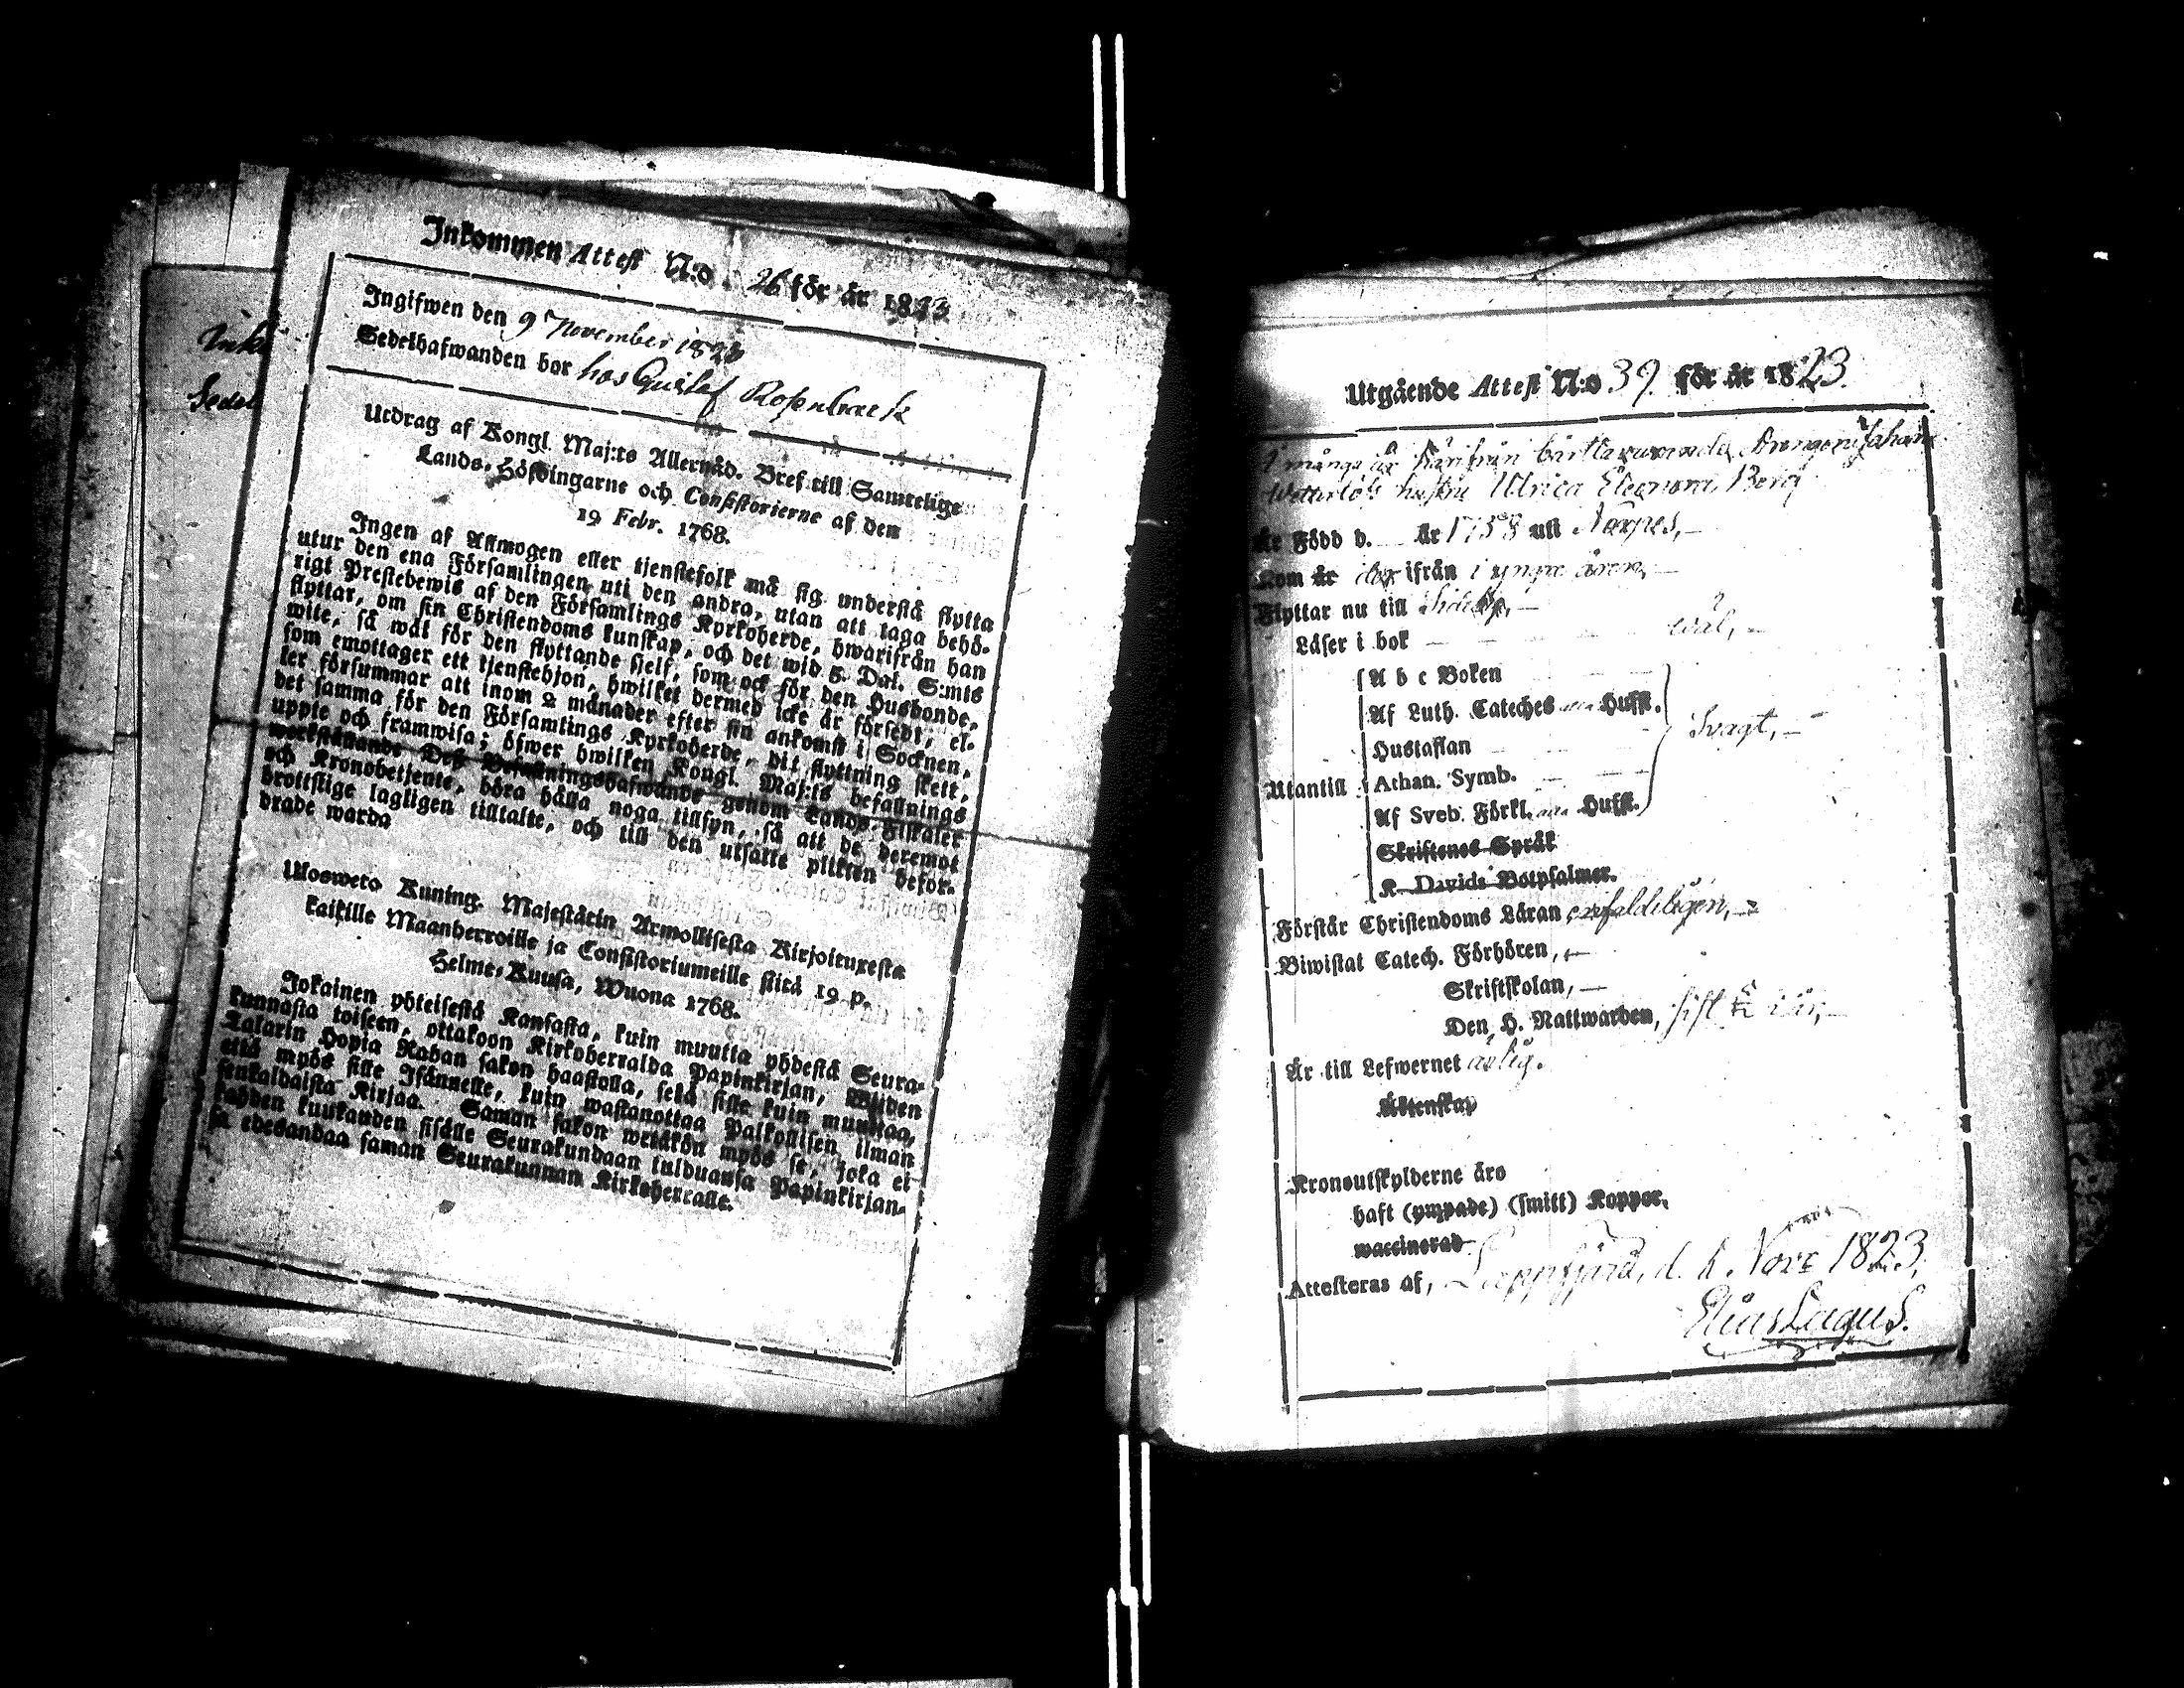 Inkommen Attest N:o 26 för år 1823
Ingifwen den 9 November 1823
Sedelhafwanden bor hos Gustaf Rosenback
Utdrag af Kongl. Maj:ts Allernåd. Bref till Samtelige
Lands-Höfdingarne och Consistorierne af den
19 Febr. 1768.
Ingen af Allmogen eller tjenstefolk må sig understå flytta
utur den ena Församlingen uti den andra, utan att taga behö-
rigt Prestebewis af den Församlings Kyrkoherde, hwarifrån han
flyttar, om sin Christendoms kunskap, och det wid 5. Dal. S:mts
wite, så wäl för den flyttande sjelf, som ock för den Husbonde,
som emottager ett tjenstehjon, hwilket dermed icke är försedt, el-
ler försummar att inom 2 månader efter sin ankomst i Socknen,
det samma för den Församlings Kyrkoherde, dit flyttning skett,
uppte och framwisa; öfwer hwilken Kongl. Maj:ts befallnings
werkställande Dess Befallningshafwande genom Lands-Fiskaler
och Kronobetjente, böra hålla noga tillsyn, så att de deremot
brottslige lagligen tilltalte, och till den utsatte plikten befor-
drade warda
Ulosweto Kuning. Majestätin Armollisesta Kirjoituxesta
kaikille Maanherroille ja Consistoriumeille siitä 19 p.
Helme-Kuusa, Wuona 1768.
Jokainen yhteisestä Kansasta, kuin muutta yhdestä Seura-
kunnasta toiseen, ottakoon Kirkoherralda Papinkirjan, Wiiden
Talarin Hopia Rahan sakon haastolla, sekä sille kuin muuttaa,
että myös sille Isännelle, kuin wastanottaa Palkollisen ilman
senkaldaista Kirjaa. Saman sakon wetäkön myös se, joka ei
kahden kuukauden sisälle Seurakundaan tulduansa Papinkirjan-
sa edesandaa saman Seurakunnan Kirkoherralle.
Utgående Attest N:o 39 för år 1823.
I många år härifrån bårtawarande Drängen Johan
hustru Ulrica Eleonora Berg
Är Född d. år 1758 uti Nerpes,
Kom år ifrån i yngre åren,
Flyttar nu till Sideby,
Läser i bok wäl,
Utantill
A b c Boken
Af Luth. Cateches Hufst.
Hustaflan
Athan. Symb.
Af Sveb. Förkl. Hufst.
Svagt,
Skriftenes Språk
K. Davids Botpsalmer.
Förstår Christendoms Läran enfaldeligen,
Biwistat Catech. Förhören,
Skriftskolan,
Den H. Nattwarden, sist i år,
Är till Lefwernet ärlig.
Äktenskap
Kronoutskylderne äro
haft (ympade) (smitt) Koppor,
waccinerad
Attesteras af, Lappfjärd, d. 6. Nov: 1823,
Elias Lagus.